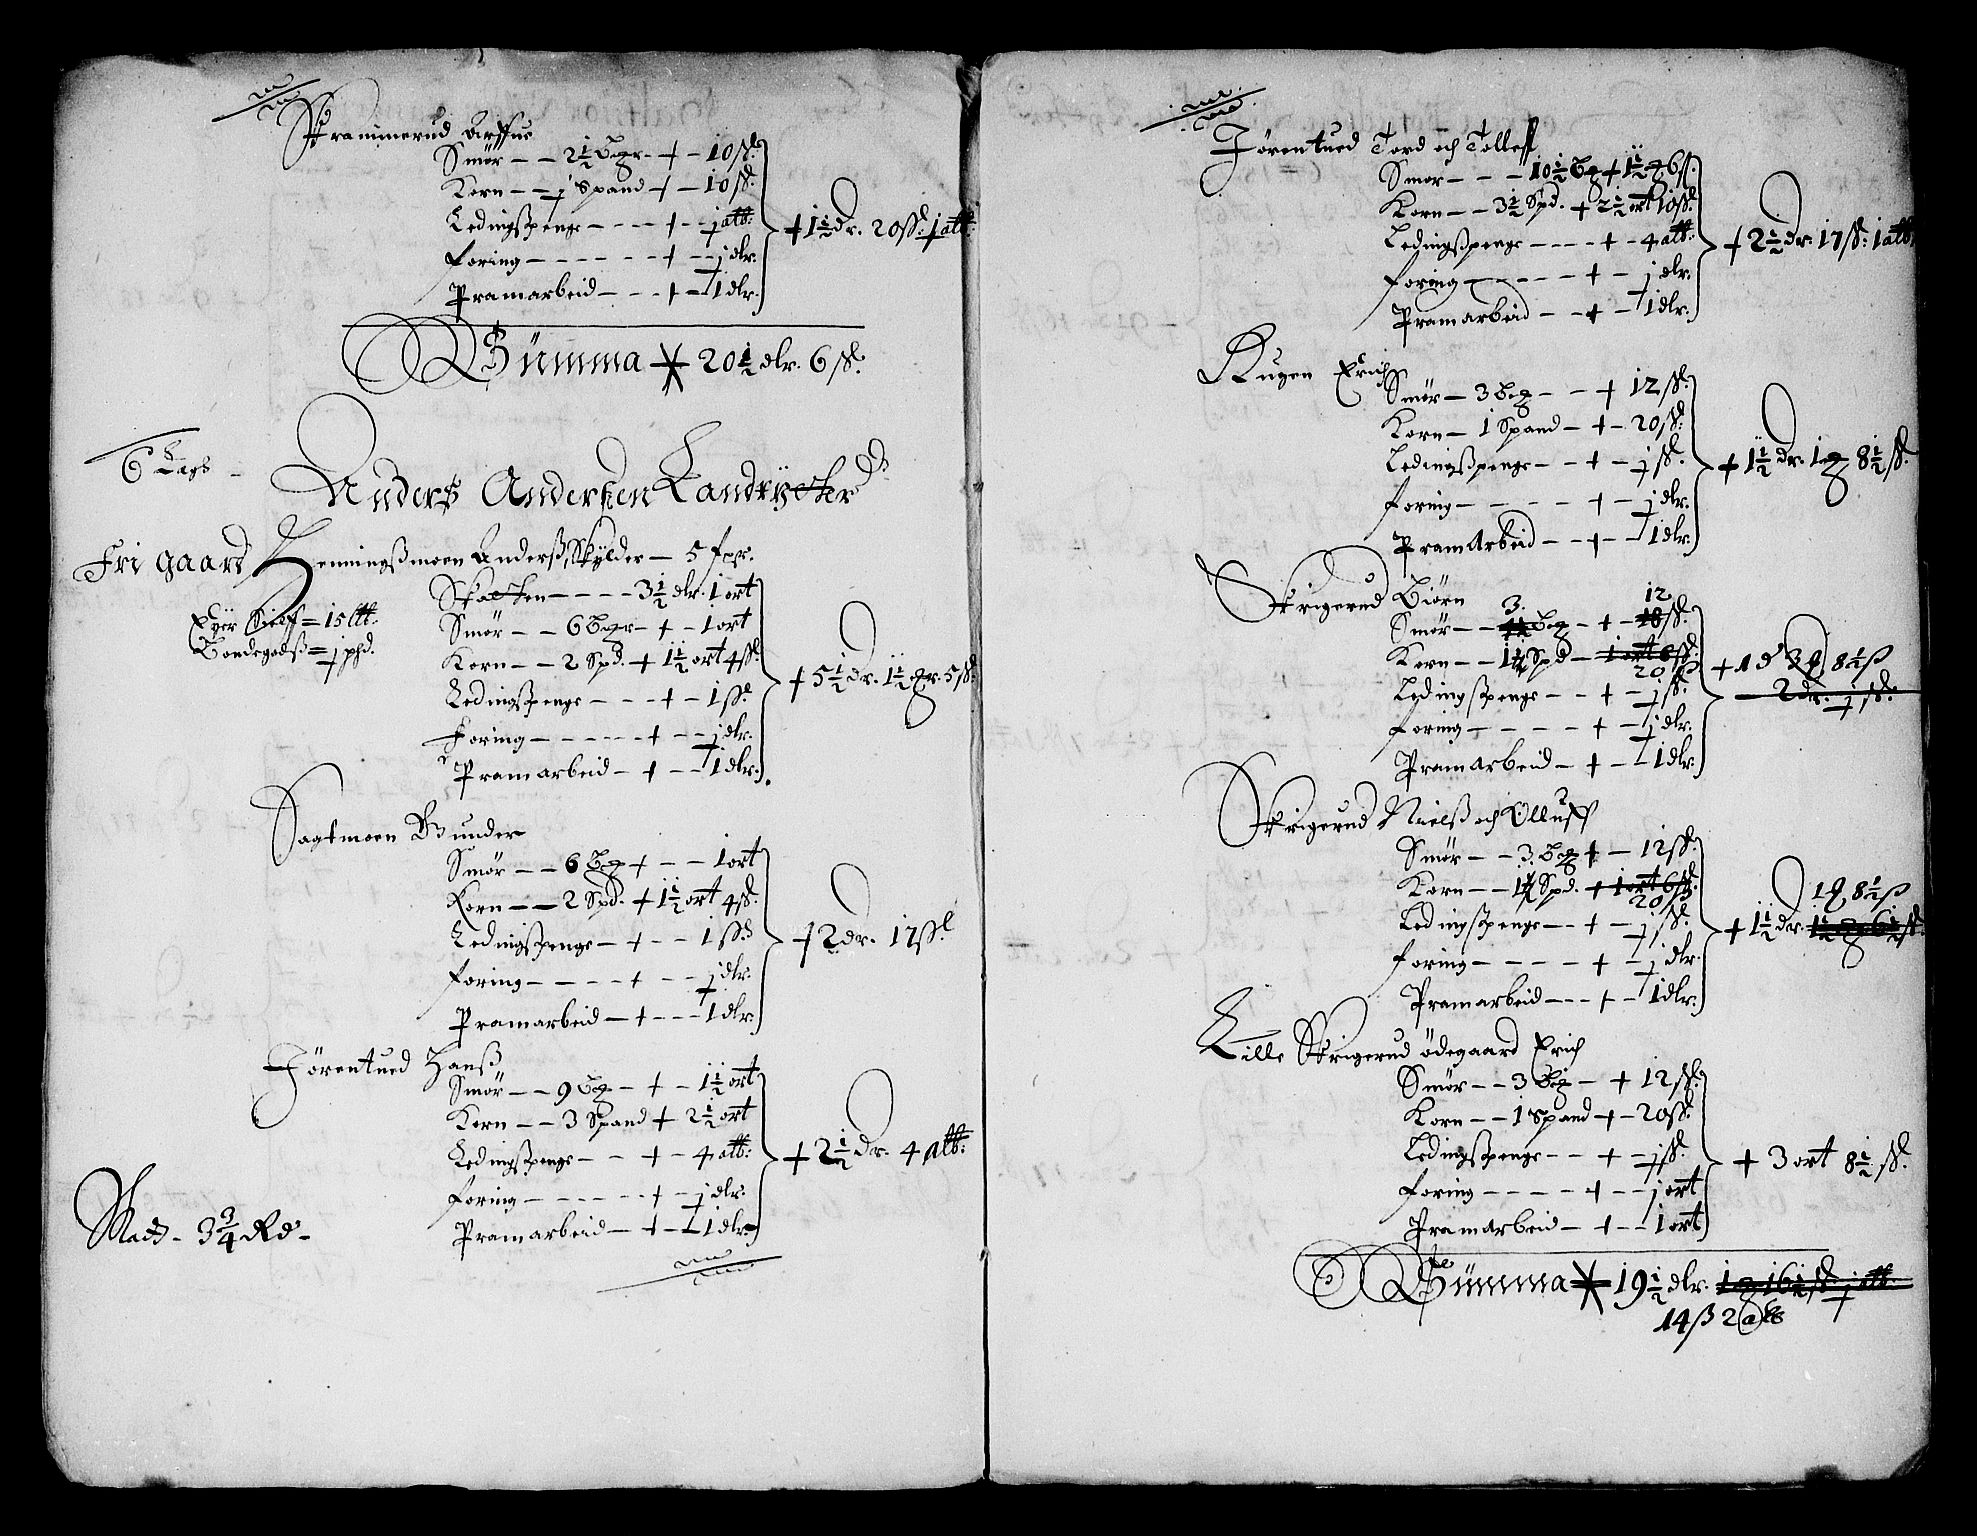 Skrammerud Arffue
Smør - - 2 1/2 Bgr. + - 10 ß.
Korn - - j Spand + - 10 ß.
Ledingßpenge - - - + - j alb:
foring - - - - - - + - - j dlr.
Pramarbeid - - - + - 1 dlr.
+ 1 1/2 dr. 20 ß. j alb:
Summa 20 1/2 dlr. 6 ß.
6 Lags -
Anders Andersen Landrycter
Fri gaard Henningßmoen Anderß, Skylder - 5 fpr.
Eyer Sielff = 15 lb.
Bondegodß = j phd.
Skatten - - - - 3 1/2 dlr. 1 ort
Smør - - 6 Bgr - + - 1 ort
Korn - - 2 Spd. + 1 1/2 ort 4 ß.
Ledingßpenge - - - + - 1 ß
Foring - - - - - - + - - j dlr.
Pramarbeid - + - - 1 dlr.
+ 5 1/2 dr. 1 1/2 gr. 5 ß.
Sagtmoen Gunder
Smør - - 6 Bg + - - 1 ort
Korn - - 2 Spd. + 1 1/2 ort 4 ß.
Ledingßpenge - + - - 1 ß
foring - - - - - + - - j dlr.
Pramarbeid - + - - - 1 dlr.
+ 2 dr. 17 ß
Jørentued Hanß
Smør - - 9 Bg - + - 1 1/2 ort
Korn - - 3 Spand + 2 1/2 ort
Ledingßpenge - - + - 4 alb:
foring - - - - - - + - j dlr.
Pramarbeid - - + - - 1 dlr.
+ 2 1/2 dr. 4 alb:
- 3 3/4 Rd -
Jørentued Tord och Tolleff
Smør - - - 10 1/2 Bg + 1 1/2 g 6 ß.
Korn - - 3 1/2 Spd. + 2 1/2 ort 10 ß.
Ledingßpenge - - - - + - 4 alb:
foring - - - - - + - j dlr.
Pramarbeid - - + - 1 dlr.
+ 2 1/2 dr. 17 ß. 1 alb:
Kugen Erich
Smør - 3 Bg - - + 12 ß.
Korn - 1 Spand - + - 20 ß.
Ledingßpenge - - + - j ß.
foring - - - - - + - j dlr.
Pramarbeid - - + - 1 dlr.
+ 1 1/2 dr. 1 g 8 1/2 ß.
Skrigerud Biørn
3. 12
Smør - - Bg - + - 18 ß.
Korn - - 1 Spd - 1 ort 6 ß.
20 ß
Ledingßpenge - - + - j ß.
foring - - - - - + - j dlr.
Pramarbeid - + - - 1 dlr.
+ 1 d 3 g 8 1/2 ß
2 dr. j ß.
Skrigerud Nielß och Olluff
Smør - - 3 Bg + - 12 ß.
Korn - - 1 Spd. + 1 ort 6 ß.
20 ß
Ledingßpenge - - + - j ß.
foring - - - - - + - j dlr.
Pramarbeid - - - + - 1 dlr.
1 g 8 1/2 ß
+ 1 1/2 dr. 1 1/2 g 6 1/2 ß.
Lille Skrigerud ødegaard Erich
Smør - - 3 Bg - + 12 ß.
Korn - - 1 Spand + - 20 ß.
Ledingßpenge - - + - j ß.
foring - - - - + - - j ort
Pramarbeid - + - - 1 ort
+ 3 ort 8 1/2 ß.
Summa 19 1/2 dlr. 1 g 16 1/2 ß. j alb.
14 ß 2 alb